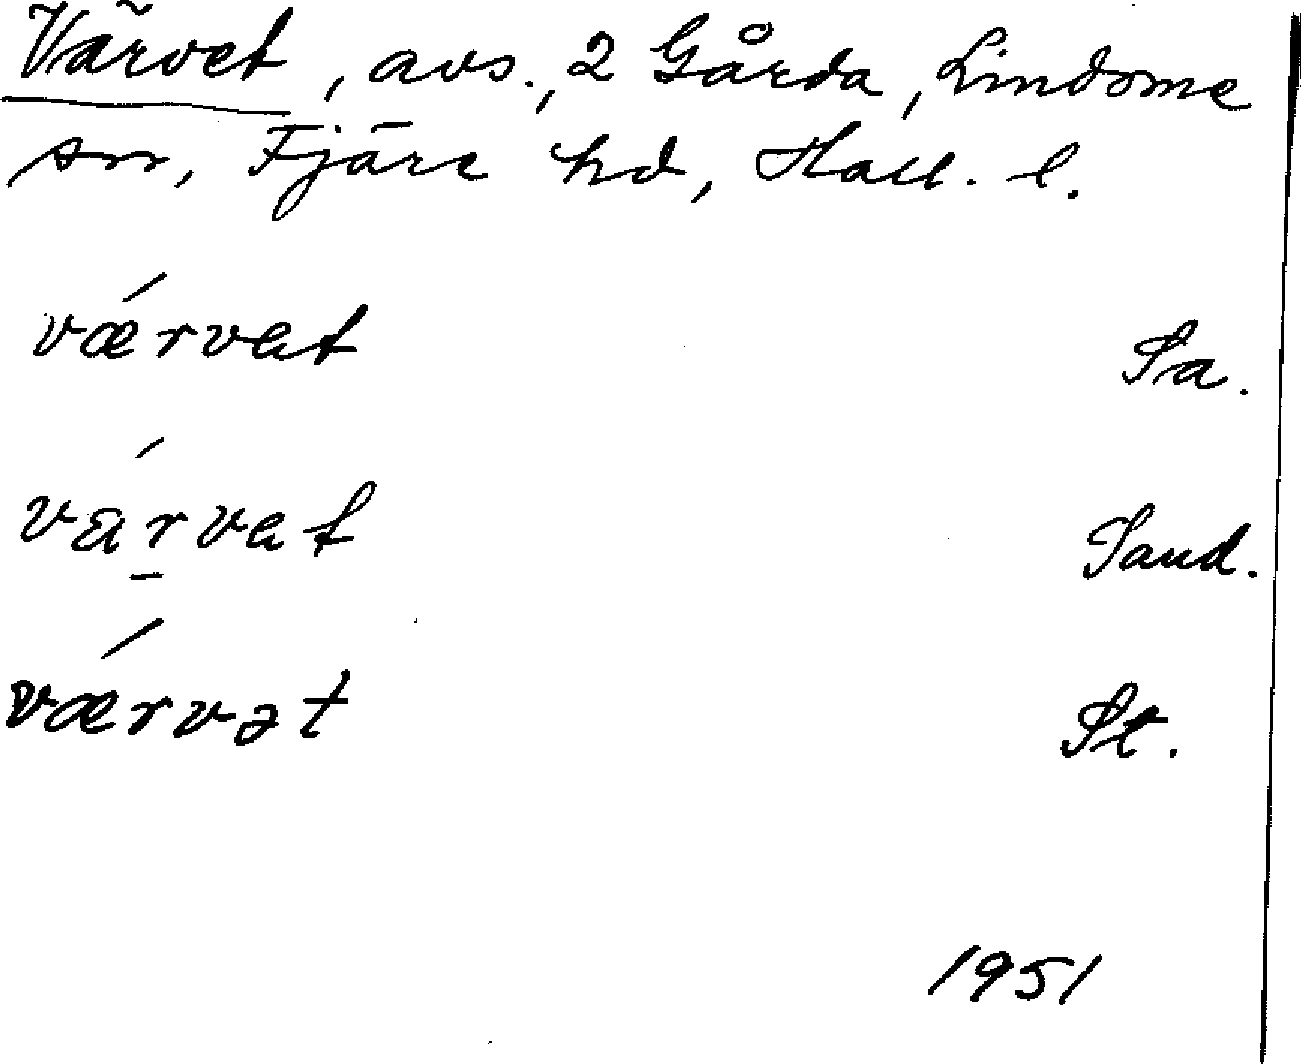 Värvet, avs., 2 Gårda, Lindome
sn, Fjäre hd, Hall. l.
vǽrvet Sa.
vár̲vet Sand.
vǽrvət St.
1951